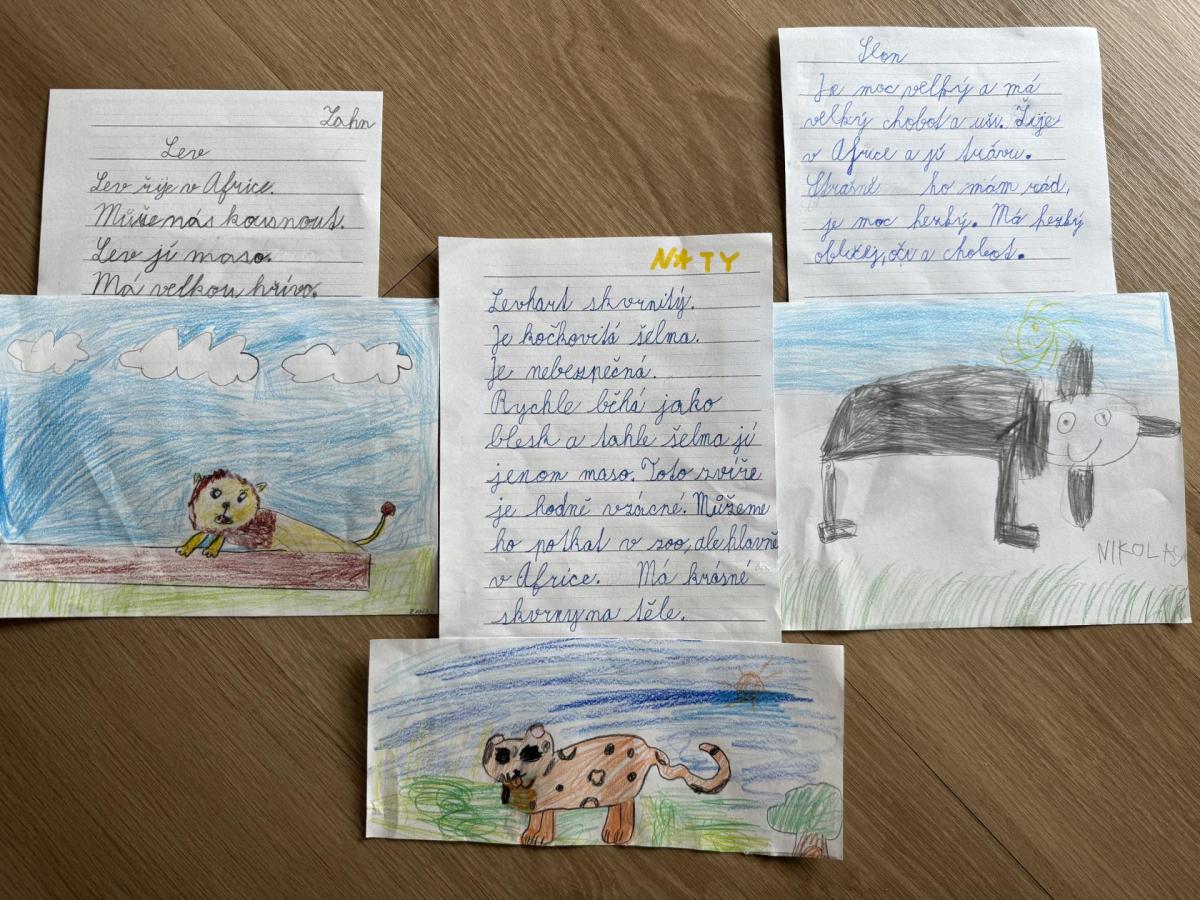 Zahn
Lev
Lev žije v Africe.
Může nás kousnout.
Lev jí maso.
Má velkou hřívo.
NATY
Levhart skvrnitý.
Je kočkovitá šelma.
Je nebezpečná.
Rychle běhá jako
blesk a tahle šelma jí
jenom maso. Toto zvíře
je hodně vzácné. Můžeme
ho potkat v zoo, ale hlavně
v Africe. Má krásné
skvrny na těle.
Slon
Je moc velký a má
velký chobot a uši. Žije
v Africe a jí trávu.
Strašně ho mám rád,
je moc hezký. Má hezký
obličej, oči a chobot.
NIKOLAS